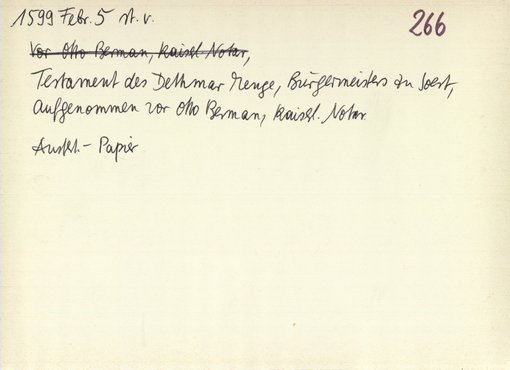 1599 Febr. 5 st. v.
266
Vor Otto Berman, Kaiserl. Notar,
Testament des Dethmar Menge, Bürgermeisters zu Soest,
Aufgenommen vor Otto Berman, Kaiserl. Notar.
Papier